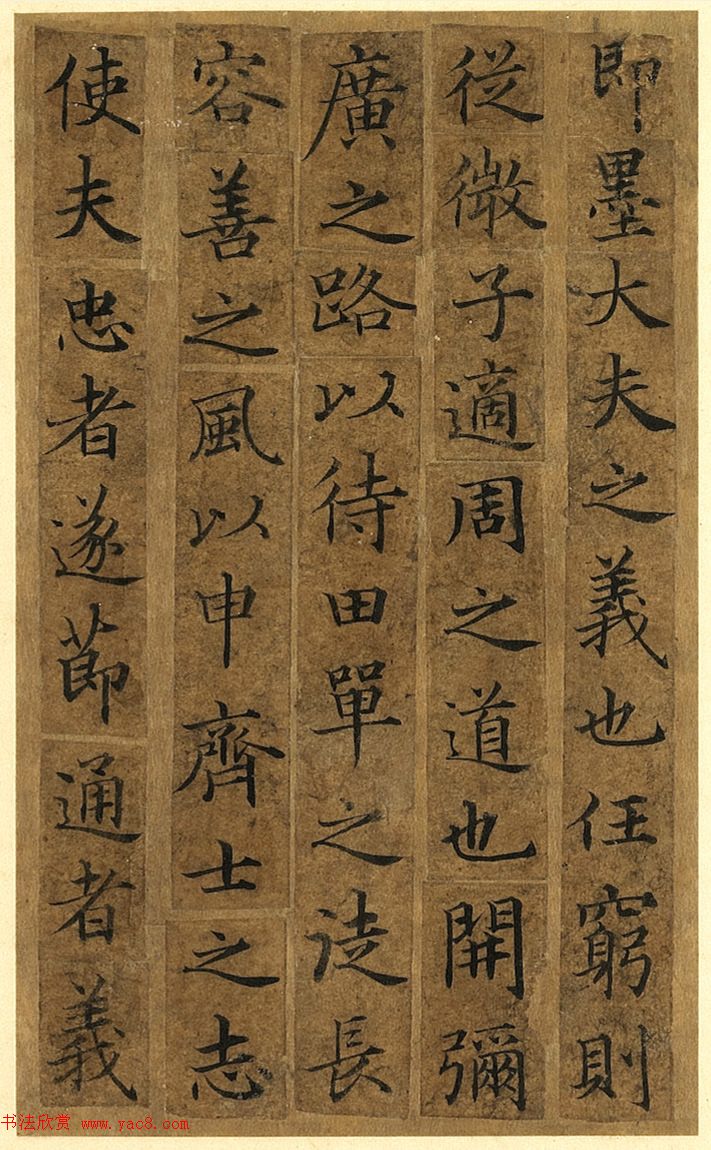 即墨大夫之義也任窮則
從微子適周之道也開彌
廣之路以待田單之徒長
容善之風以申齊士之志
使夫忠者遂節通者義
书法欣赏 www.yac8.com